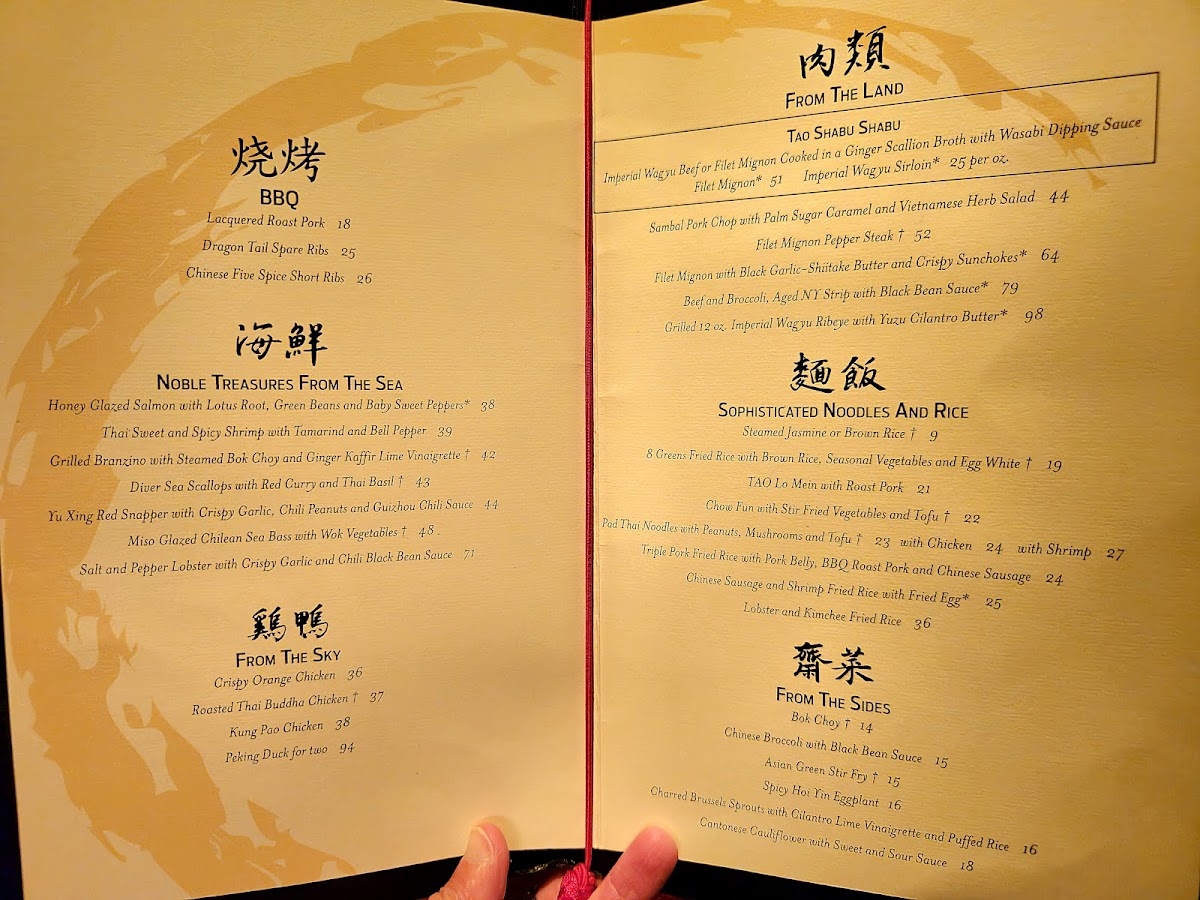 烧烤
BBQ
Lacquered Roast Pork 18
Dragon Tail Spare Ribs 25
Chinese Five Spice Short Ribs 26
海鮮
Noble Treasures From The Sea
Honey Glazed Salmon with Lotus Root, Green Beans and Baby Sweet Peppers* 38
Thai Sweet and Spicy Shrimp with Tamarind and Bell Pepper 39
Grilled Branzino with Steamed Bok Choy and Ginger Kaffir Lime Vinaigrette † 42
Diver Sea Scallops with Red Curry and Thai Basil † 43
Yu Xing Red Snapper with Crispy Garlic, Chili Peanuts and Guizhou Chili Sauce 44
Miso Glazed Chilean Sea Bass with Wok Vegetables † 48.
Salt and Pepper Lobster with Crispy Garlic and Chili Black Bean Sauce 71
鷄鴨
From The Sky
Crispy Orange Chicken 36
Roasted Thai Buddha Chicken † 37
Kung Pao Chicken 38
Peking Duck for two 94
肉類
From The Land
Tao Shabu Shabu
Imperial Wagyu Beef or Filet Mignon Cooked in a Ginger Scallion Broth with Wasabi Dipping Sauce
Filet Mignon* 51 Imperial Wagyu Sirloin* 25 per oz.
Sambal Pork Chop with Palm Sugar Caramel and Vietnamese Herb Salad 44
Filet Mignon Pepper Steak † 52
Filet Mignon with Black Garlic-Shiitake Butter and Crispy Sunchokes* 64
Beef and Broccoli, Aged NY Strip with Black Bean Sauce* 79
Grilled 12 oz. Imperial Wagyu Ribeye with Yuzu Cilantro Butter* 98
麵飯
Sophisticated Noodles And Rice
Steamed Jasmine or Brown Rice † 9
8 Greens Fried Rice with Brown Rice, Seasonal Vegetables and Egg White † 19
TAO Lo Mein with Roast Pork 21
Chow Fun with Stir Fried Vegetables and Tofu † 22
Pad Thai Noodles with Peanuts, Mushrooms and Tofu † 23 with Chicken 24 with Shrimp 27
Triple Pork Fried Rice with Pork Belly, BBQ Roast Pork and Chinese Sausage 24
Chinese Sausage and Shrimp Fried Rice with Fried Egg* 25
Lobster and Kimchee Fried Rice 36
齋菜
From The Sides
Bok Choy † 14
Chinese Broccoli with Black Bean Sauce 15
Asian Green Stir Fry † 15
Spicy Hoi Yin Eggplant 16
Charred Brussels Sprouts with Cilantro Lime Vinaigrette and Puffed Rice 16
Cantonese Cauliflower with Sweet and Sour Sauce 18